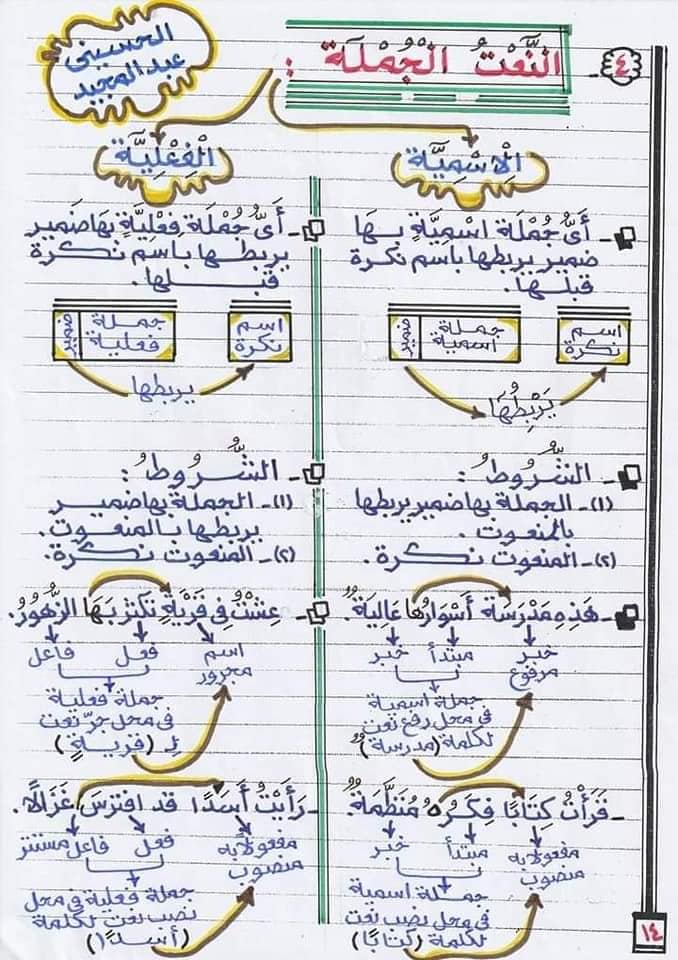 ٤- النَّعْتُ الْجُمْلَة :
الحسينى
عبدالمجيد
الْاِسْمِيَّة
أَىُّ جُمْلَة اسْمِيَّةٍ بِهَا
ضمير يربطها باسم نكرة
قبلها.
اسم نكرة
جملة اسمية
ضمير
يَرْبِطُهَا
- الشُّرُوطُ :
(١)- الجملة بها ضمير يربطها
بالمنعوت.
(٢)- المنعوت نكرة.
- هَذِهِ مَدْرَسَة أَسْوَارُها عَالِيَةٌ.
خبر مرفوع
مبتدأ
خبر
جملة اسمية
فى محل رفع نعت
لكلمة (مدرسة)
- قَرَأْتُ كِتَابًا فِكَرُهُ مُنَظَّمَةٌ.
مفعولا به
منصوب
مبتدأ
خبر
جملة اسمية
فى محل نصب نعت
لكلمة (كتابًا)
الْفِعْلِيَّة
أَىُّ جُمْلَة فِعْلِيَّةٍ بها ضمير
يربطها باسم نكرة
قبلها.
اسم نكرة
جملة فعلية
ضمير
يربطها
- الشُّرُوطُ :
(١)- الجملة بها ضمير
يربطها بالمنعوت.
(٢)- المنعوت نكرة.
- عِشْتُ فِى قَرْيَةٍ تكثر بَهَا الزُّهُورُ.
اسم
مجرور
فعل
فاعل
جملة فعلية
فى محل جرّ نعت
لـ (قريةٍ)
- رَأَيْتُ أَسَدًا قد افترسَ غَزَالًا.
مفعولا به
منصوب
فعل
فاعل مستتر
جملة فعلية فى محل
نصب نعت لكلمة
(أسدًا)
١٤